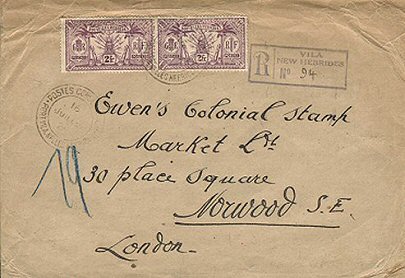 2F
RF
2F
RF
VILA
NEW HEBRIDES
R
No 94
POSTES
Ewen's Colonial Stamp
Market Ltd
30 place Square
Norwood S.E.
London.
19